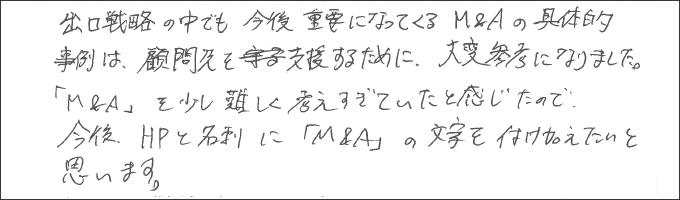 出口戦略の中でも今後重要になってくるM&Aの具体的
事例は、顧問先を支援するために、大変参考になりました。
「M&A」を少し難しく考えすぎていたと感じたので、
今後、HPと名刺に「M&A」の文字を付け加えたいと
思います。